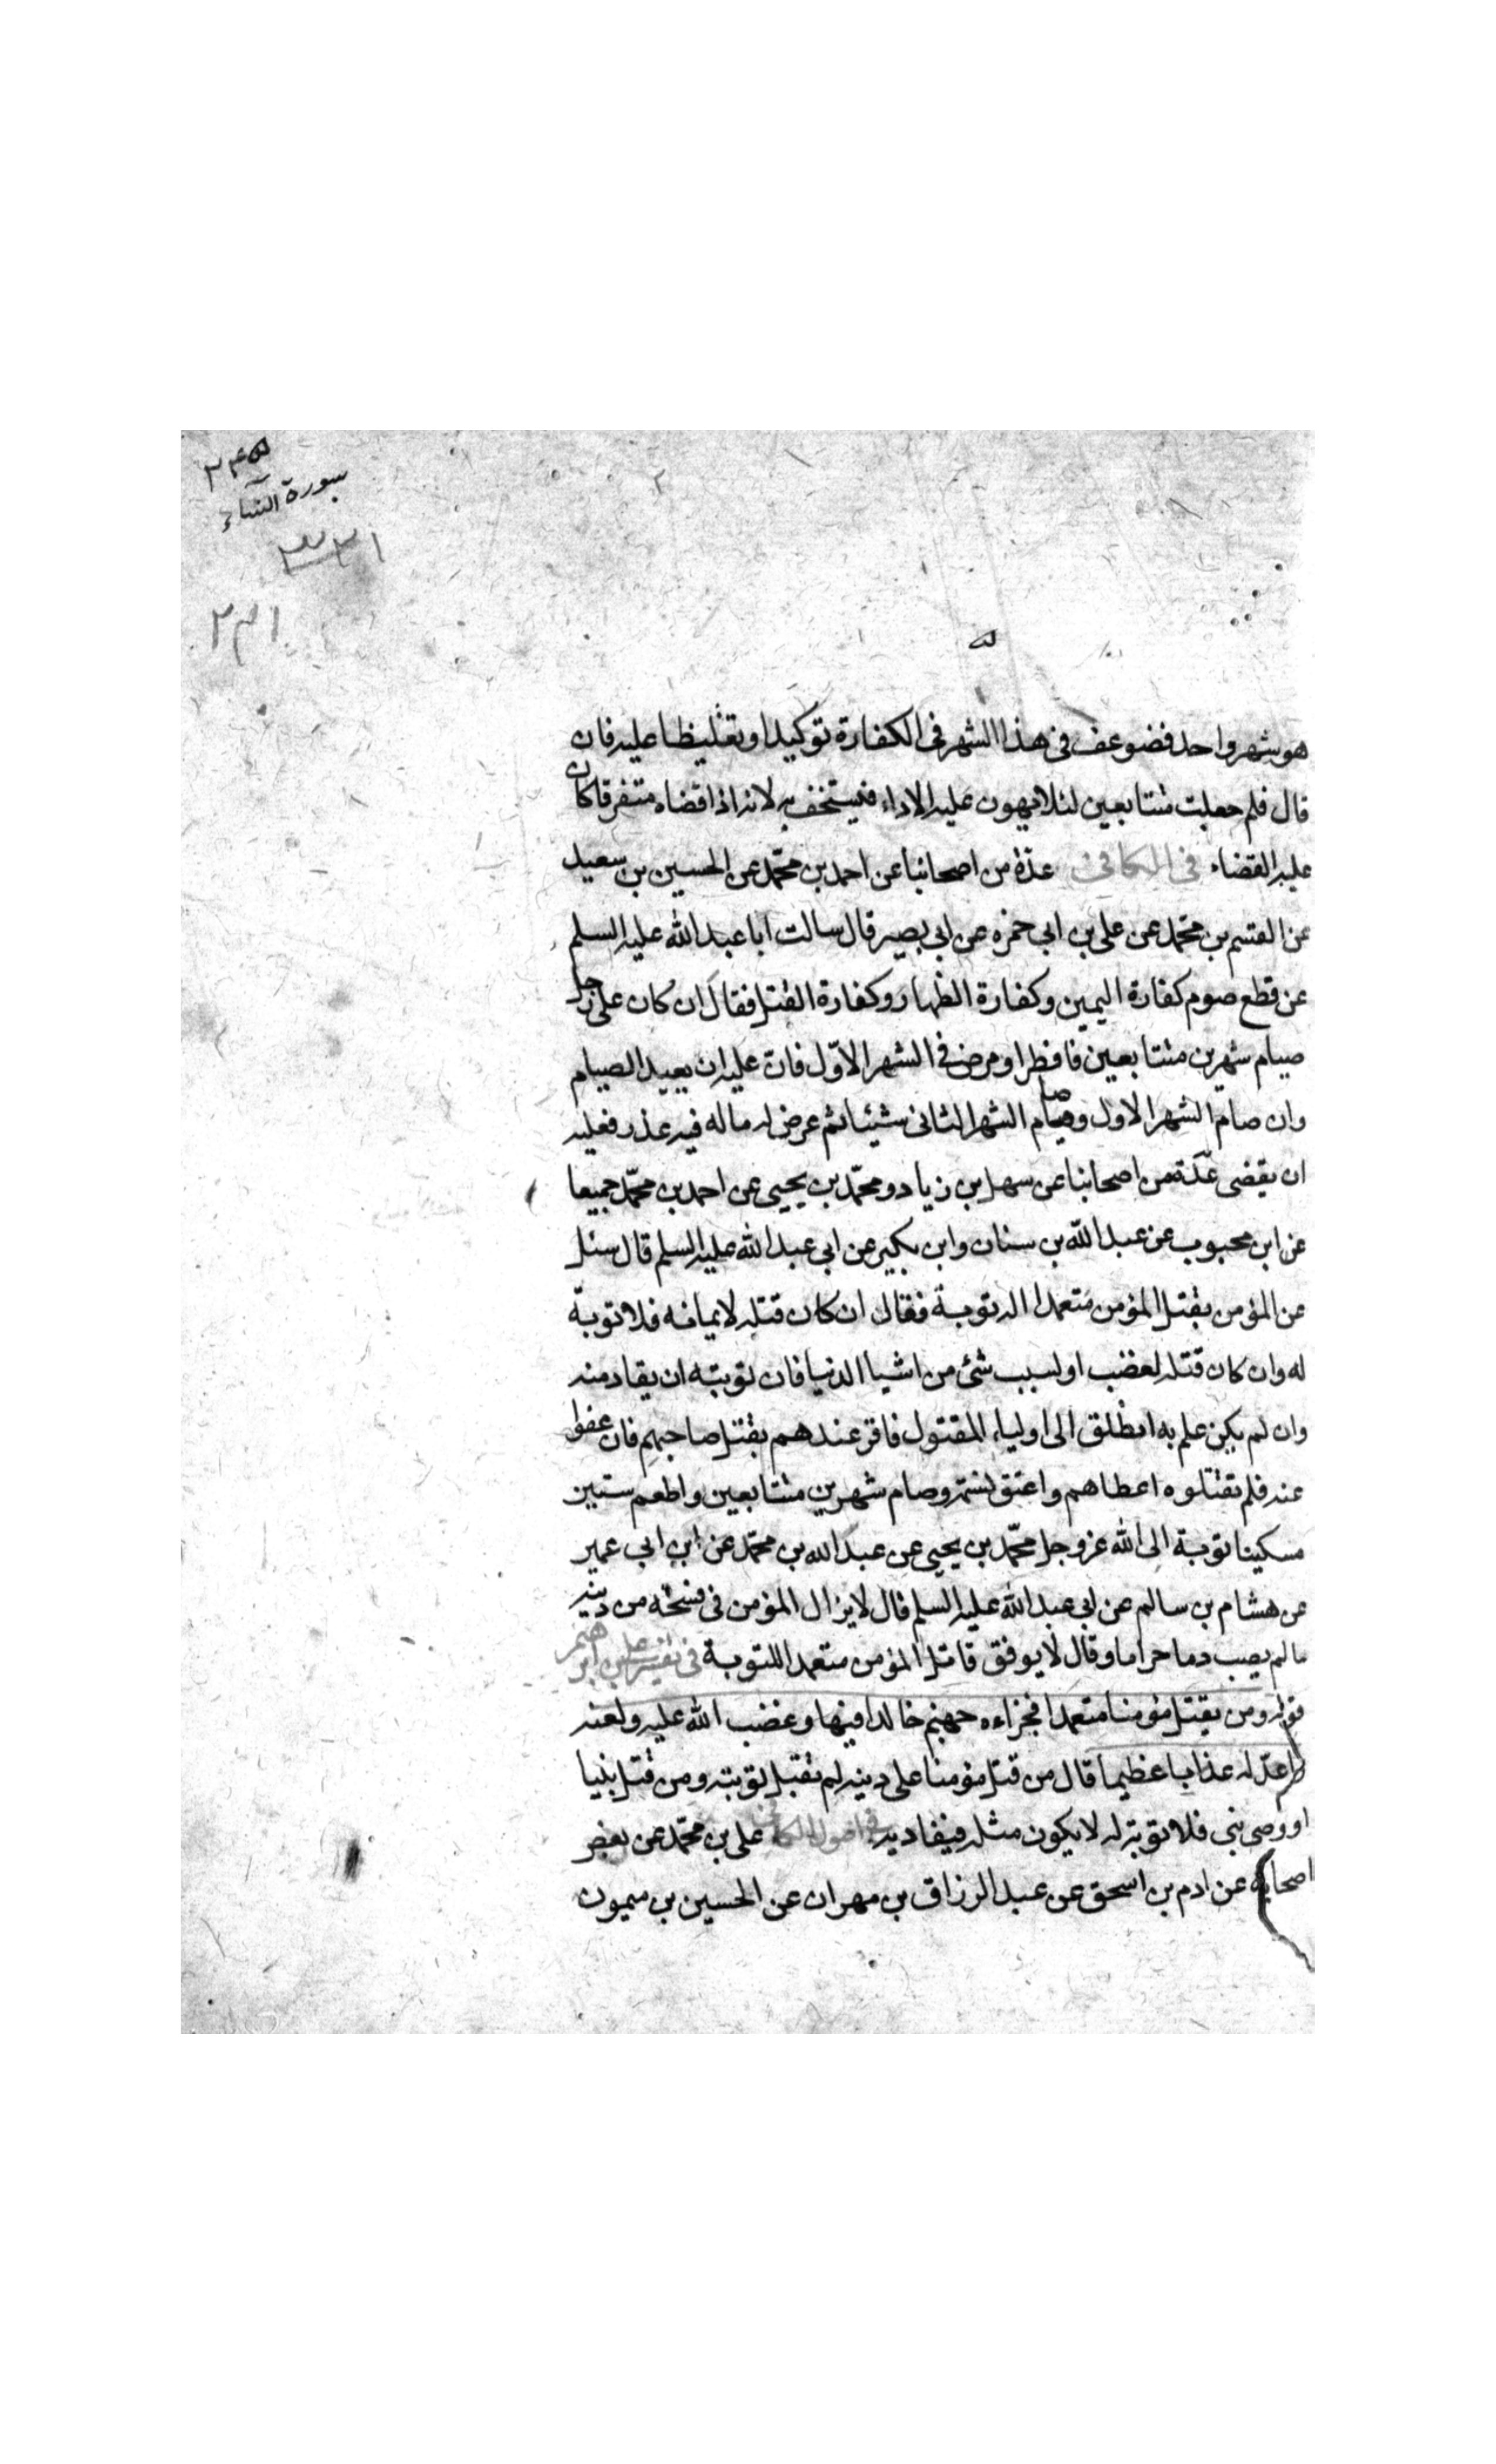 ٢٤٥
سورة النساء
٢٣١
هو شهر واحد فضوعف في هذا الشهر في الكفارة توكيدا وتغليظا عليه فان
قال فلم جعلت متتابعين لئلا يهون عليه الاداء فيستخف به لانه اذا قضاه متفرقا كان
عليه القضاء في الكافي عدة من اصحابنا عن احمد بن محمّد عن الحسين بن سعيد
عن القسم بن محمّد عن علي بن ابي حمزه عن ابي بصير قال سالت ابا عبد الله عليه السلم
عن قطع صوم كفارة اليمين وكفارة الظهار وكفارة القتل فقال ان كان على رجل
صيام شهرين متتابعين فافطر او مرض في الشهر الاوّل فان عليه ان يعيد الصيام
وان صام الشهر الاول وصام الشهر الثاني شيئا ثم عرض له ماله فيه عذر فعليه
ان يقضى عدّة من اصحابنا عن سهل بن زياد ومحمّد بن يحيى عن احمد بن محمّد جميعا
عن ابن محبوب عن عبد الله بن سنان وابن بكير عن ابي عبد الله عليه السلم قال سئل
عن المؤمن يقتل المؤمن متعمدا اله توبة فقال ان كان قتله لايمانه فلا توبة
له وان كان قتله لغضب او لسبب شئ من اشيا الدنيا فان توبته ان يقاد منه
وان لم يكن علم به انطلق الى اولياء المقتول فاقر عندهم بقتل صاحبهم فان عفوا
عنه فلم يقتلوه اعطاهم واعتق نسمة وصام شهرين متتابعين واطعم ستين
مسكينا توبة الى الله عز وجل محمّد بن يحيى عن عبد الله بن محمّد عن ابن ابي عمير
عن هشام بن سالم عن ابي عبد الله عليه السلم قال لا يزال المؤمن في فسحة من دينه
ما لم يصب دما حراما وقال لا يوفق قاتل المؤمن متعمدا للتوبة في تفسير علي بن ابرهيم
قوله ومن يقتل مؤمنا متعمدا فجزاءه جهنم خالدا فيها وغضب الله عليه ولعنه
واعدّ له عذابا عظيما قال من قتل مؤمنا على دينه لم تقبل توبته ومن قتل نبيا
او وصى نبى فلا توبة له لا يكون مثله فيقاد به في اصول الكافي علي بن محمّد عن بعض
اصحابه عن ادم بن اسحق عن عبد الرزاق بن مهران عن الحسين بن ميمون